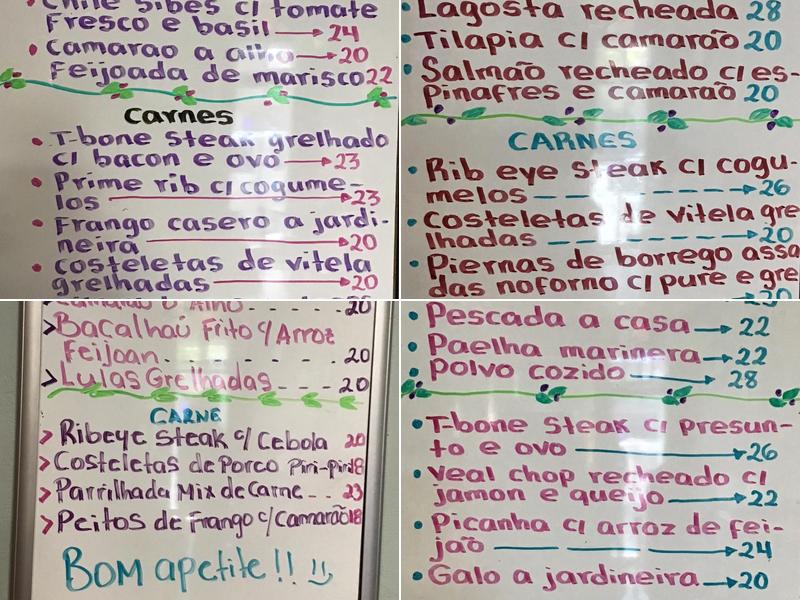 Chile Sibes c/ tomate
Fresco e basil 24
Camarao a alho 20
Feijoada de marisco 22
Carnes
T-bone steak grelhado
c/ bacon e ovo 23
Prime rib c/ cogume-
los 23
Frango casero a jardi-
neira 20
costeletas de vitela
grelhadas 20
Lagosta recheada 28
Tilapia c/ camarão 20
Salmão recheado c/ es-
pinafres e camarão 20
CARNES
Rib eye steak c/ cogu-
melos 26
Costeletas de vitela gre
lhadas 20
Piernas de borrego assa
das noforno c/ pure e gre
20
Camarão o Alho 20
Bacalhaú Frito c/ Arroz
Feijoan 20
Lulas Grelhadas 20
CARNE
Ribeye Steak c/ Cebola 20
Costeletas de Porco Piri-piri 18
Parrilhada Mix de Carne 23
Peitos de Frango c/ Camarão 18
Bom apetite!!
Pescada a casa 22
Paelha marinera 22
polvo cozido 28
T-bone Steak c/ presun-
to e ovo 26
veal chop recheado c/
jamon e queijo 22
Picanha c/ arroz de fei-
jão 24
Galo a jardineira 20